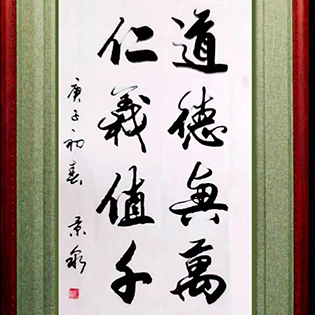 道德無萬
仁義值千
庚子初春 景泉